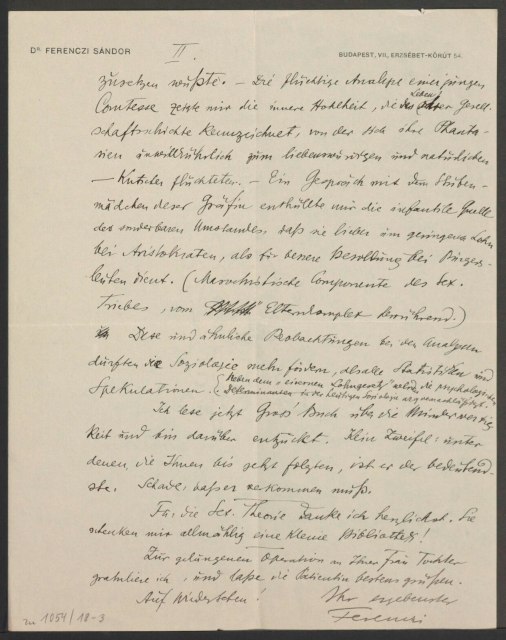 Dr. FERENCZI SÁNDOR
II.
BUDAPEST, VII, ERZSÉBET-KÖRÚT 54.
zusetzen wußte. – Die flüchtige Analyse einer jungen
Comtesse zeigte mir die innere Hohlheit, die das Leben dieser Gesell-
schaftsschichte kennzeichnet, von der sich ihre Phanta-
sien unwillkührlich zum liebenswürdigen und natürlichen
– Kutscher flüchteten. – Ein Gespräch mit dem Stuben-
mädchen dieser Gräfin enthüllte mir die infantile Quelle
des sonderbaren Umstandes, daß sie lieber um geringen Lohn
bei Aristokraten, als für bessere Besoldung bei Bürgers-
leuten dient. (Masochistische Componente des Sex.
Triebes, vom Elternkomplex herrührend.)
Diese und ähnliche Beobachtungen bei den Analysen
dürften die Soziologie mehr fördern, als alle Statistiken und
Spekulationen. (Neben dem "eisernen Lohngesetz" welche die psychologischen
Determinanten in der heutigen Soziologie arg vernachlässigt.
Ich lese jetzt Gross' Buch über die Minderwertig
keit und bin darüber entzückt. Kein Zweifel: unter
denen, die Ihnen bis jetzt folgten, ist er der bedeutend-
ste. Schade, daß er verkommen muß.
Für die Sex. Theorie danke ich herzlichst. Sie
schenken mir allmählig eine kleine Bibliothek!
Zur gelungenen Operation an Ihrer Frau Tochter
gratuliere ich, und lasse die Patientin bestens grüßen.
Auf Wiedersehen!
Ihr ergebenster
Ferenczi
1054/18-3